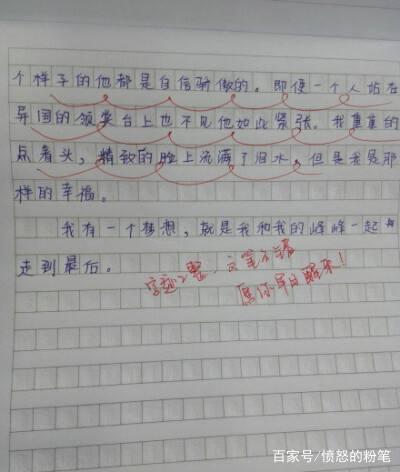 个样子的他都是自信骄傲的。即便一个人站在
异国的领奖台上也不见他如此紧张。我重重的
点着头，精致的脸上流满了泪水，但是我是那
样的幸福。
我有一个梦想，就是我和我的峰峰一起
走到最后。
字迹工整，文笔不错
愿你早日醒来！
百家号/愤怒的粉笔